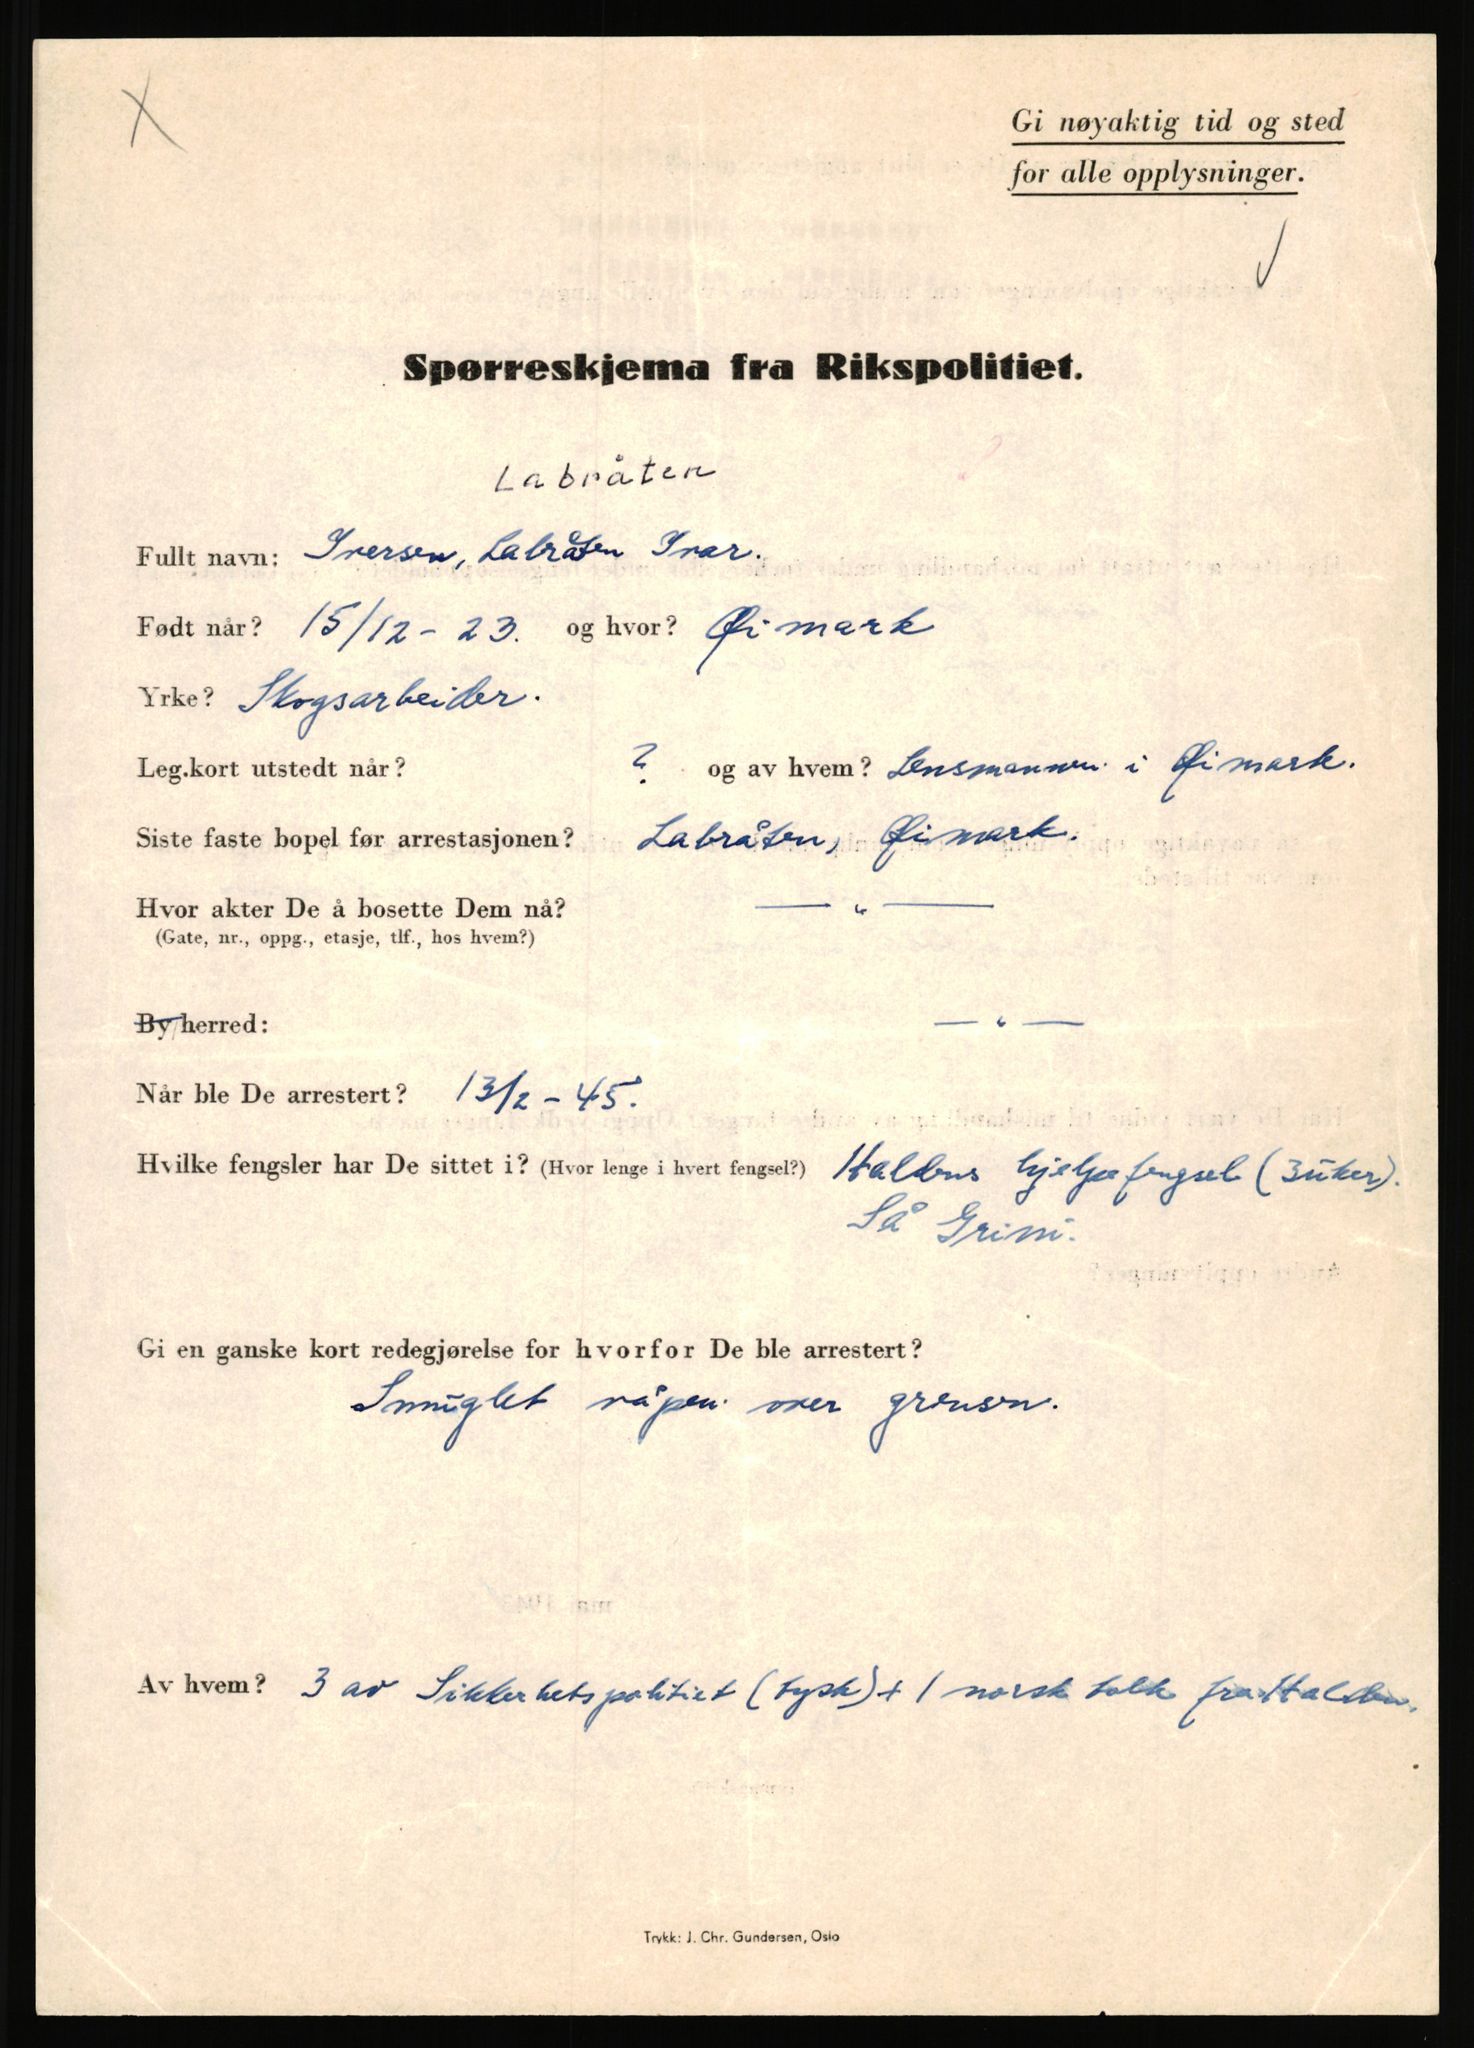 Gi nøyaktig tid og sted
for alle opplysninger.
Spørreskjema fra Rikspolitiet.
Labråten
Fullt navn: Iversen, Labråten Ivar.
Født når? 15/12-23. og hvor? Øimark
Yrke? Skogsarbeider.
Leg.kort utstedt når? ? og av hvem? Lensmannen i Øimark.
Siste faste bopel før arrestasjonen? Labråten, Øimark.
Hvor akter De å bosette Dem nå? — " —
(Gate, nr., oppg., etasje, tlf., hos hvem?)
By/herred: — " —
Når ble De arrestert? 13/2-45.
Hvilke fengsler har De sittet i? (Hvor lenge i hvert fengsel?) Haldens hjelpefengsel (3 uker).
Så Grini.
Gi en ganske kort redegjørelse for hvorfor De ble arrestert?
Smuglet våpen over grensen.
Av hvem? 3 av Sikkerhetspolitiet (tysk) + 1 norsk tolk fra Halden.
Trykk: J. Chr. Gundersen, Oslo